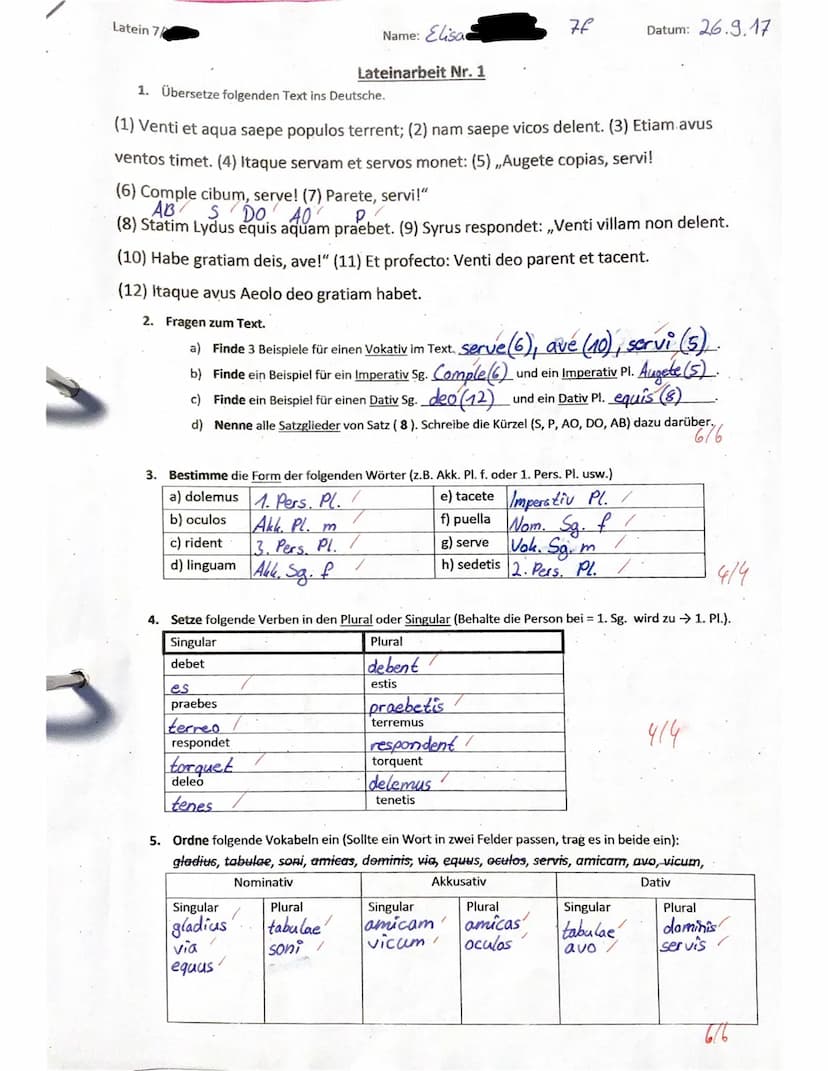 Latein 7/
Name: Elisa 7f Datum: 26.9.17
Lateinarbeit Nr. 1
1. Übersetze folgenden Text ins Deutsche.
(1) Venti et aqua saepe populos terrent; (2) nam saepe vicos delent. (3) Etiam avus
ventos timet. (4) Itaque servam et servos monet: (5) „Augete copias, servi!
(6) Comple cibum, serve! (7) Parete, servi!“
AB S DO AO P
(8) Statim Lydus equis aquam praebet. (9) Syrus respondet: „Venti villam non delent.
(10) Habe gratiam deis, ave!“ (11) Et profecto: Venti deo parent et tacent.
(12) Itaque avus Aeolo deo gratiam habet.
2. Fragen zum Text.
a) Finde 3 Beispiele für einen Vokativ im Text. serve(6), ave (10), servi (5).
b) Finde ein Beispiel für ein Imperativ Sg. Comple(6) und ein Imperativ Pl. Augete(5).
c) Finde ein Beispiel für einen Dativ Sg. deo(12) und ein Dativ Pl. equis (8).
d) Nenne alle Satzglieder von Satz ( 8 ). Schreibe die Kürzel (S, P, AO, DO, AB) dazu darüber.
6/6
3. Bestimme die Form der folgenden Wörter (z.B. Akk. Pl. f. oder 1. Pers. Pl. usw.)
a) dolemus 1. Pers. Pl. e) tacete Imperativ Pl.
b) oculos Akk. Pl. m f) puella Nom. Sg. f
c) rident 3. Pers. Pl. g) serve Vok. Sg. m
d) linguam Akk. Sg. f h) sedetis 2. Pers. Pl.
4/4
4. Setze folgende Verben in den Plural oder Singular (Behalte die Person bei = 1. Sg. wird zu → 1. Pl.).
Singular Plural
debet debent
es estis
praebes praebetis
terreo terremus
respondet respondent
4/4
torquet torquent
deleo delemus
tenes tenetis
5. Ordne folgende Vokabeln ein (Sollte ein Wort in zwei Felder passen, trag es in beide ein):
gladius, tabulae, soni, amicas, dominis, via, equus, oculos, servis, amicam, avo, vicum,
Nominativ Akkusativ Dativ
Singular Plural Singular Plural Singular Plural
gladius tabulae amicam amicas tabulae dominis
via soni vicum oculos avo servis
equus
6/6